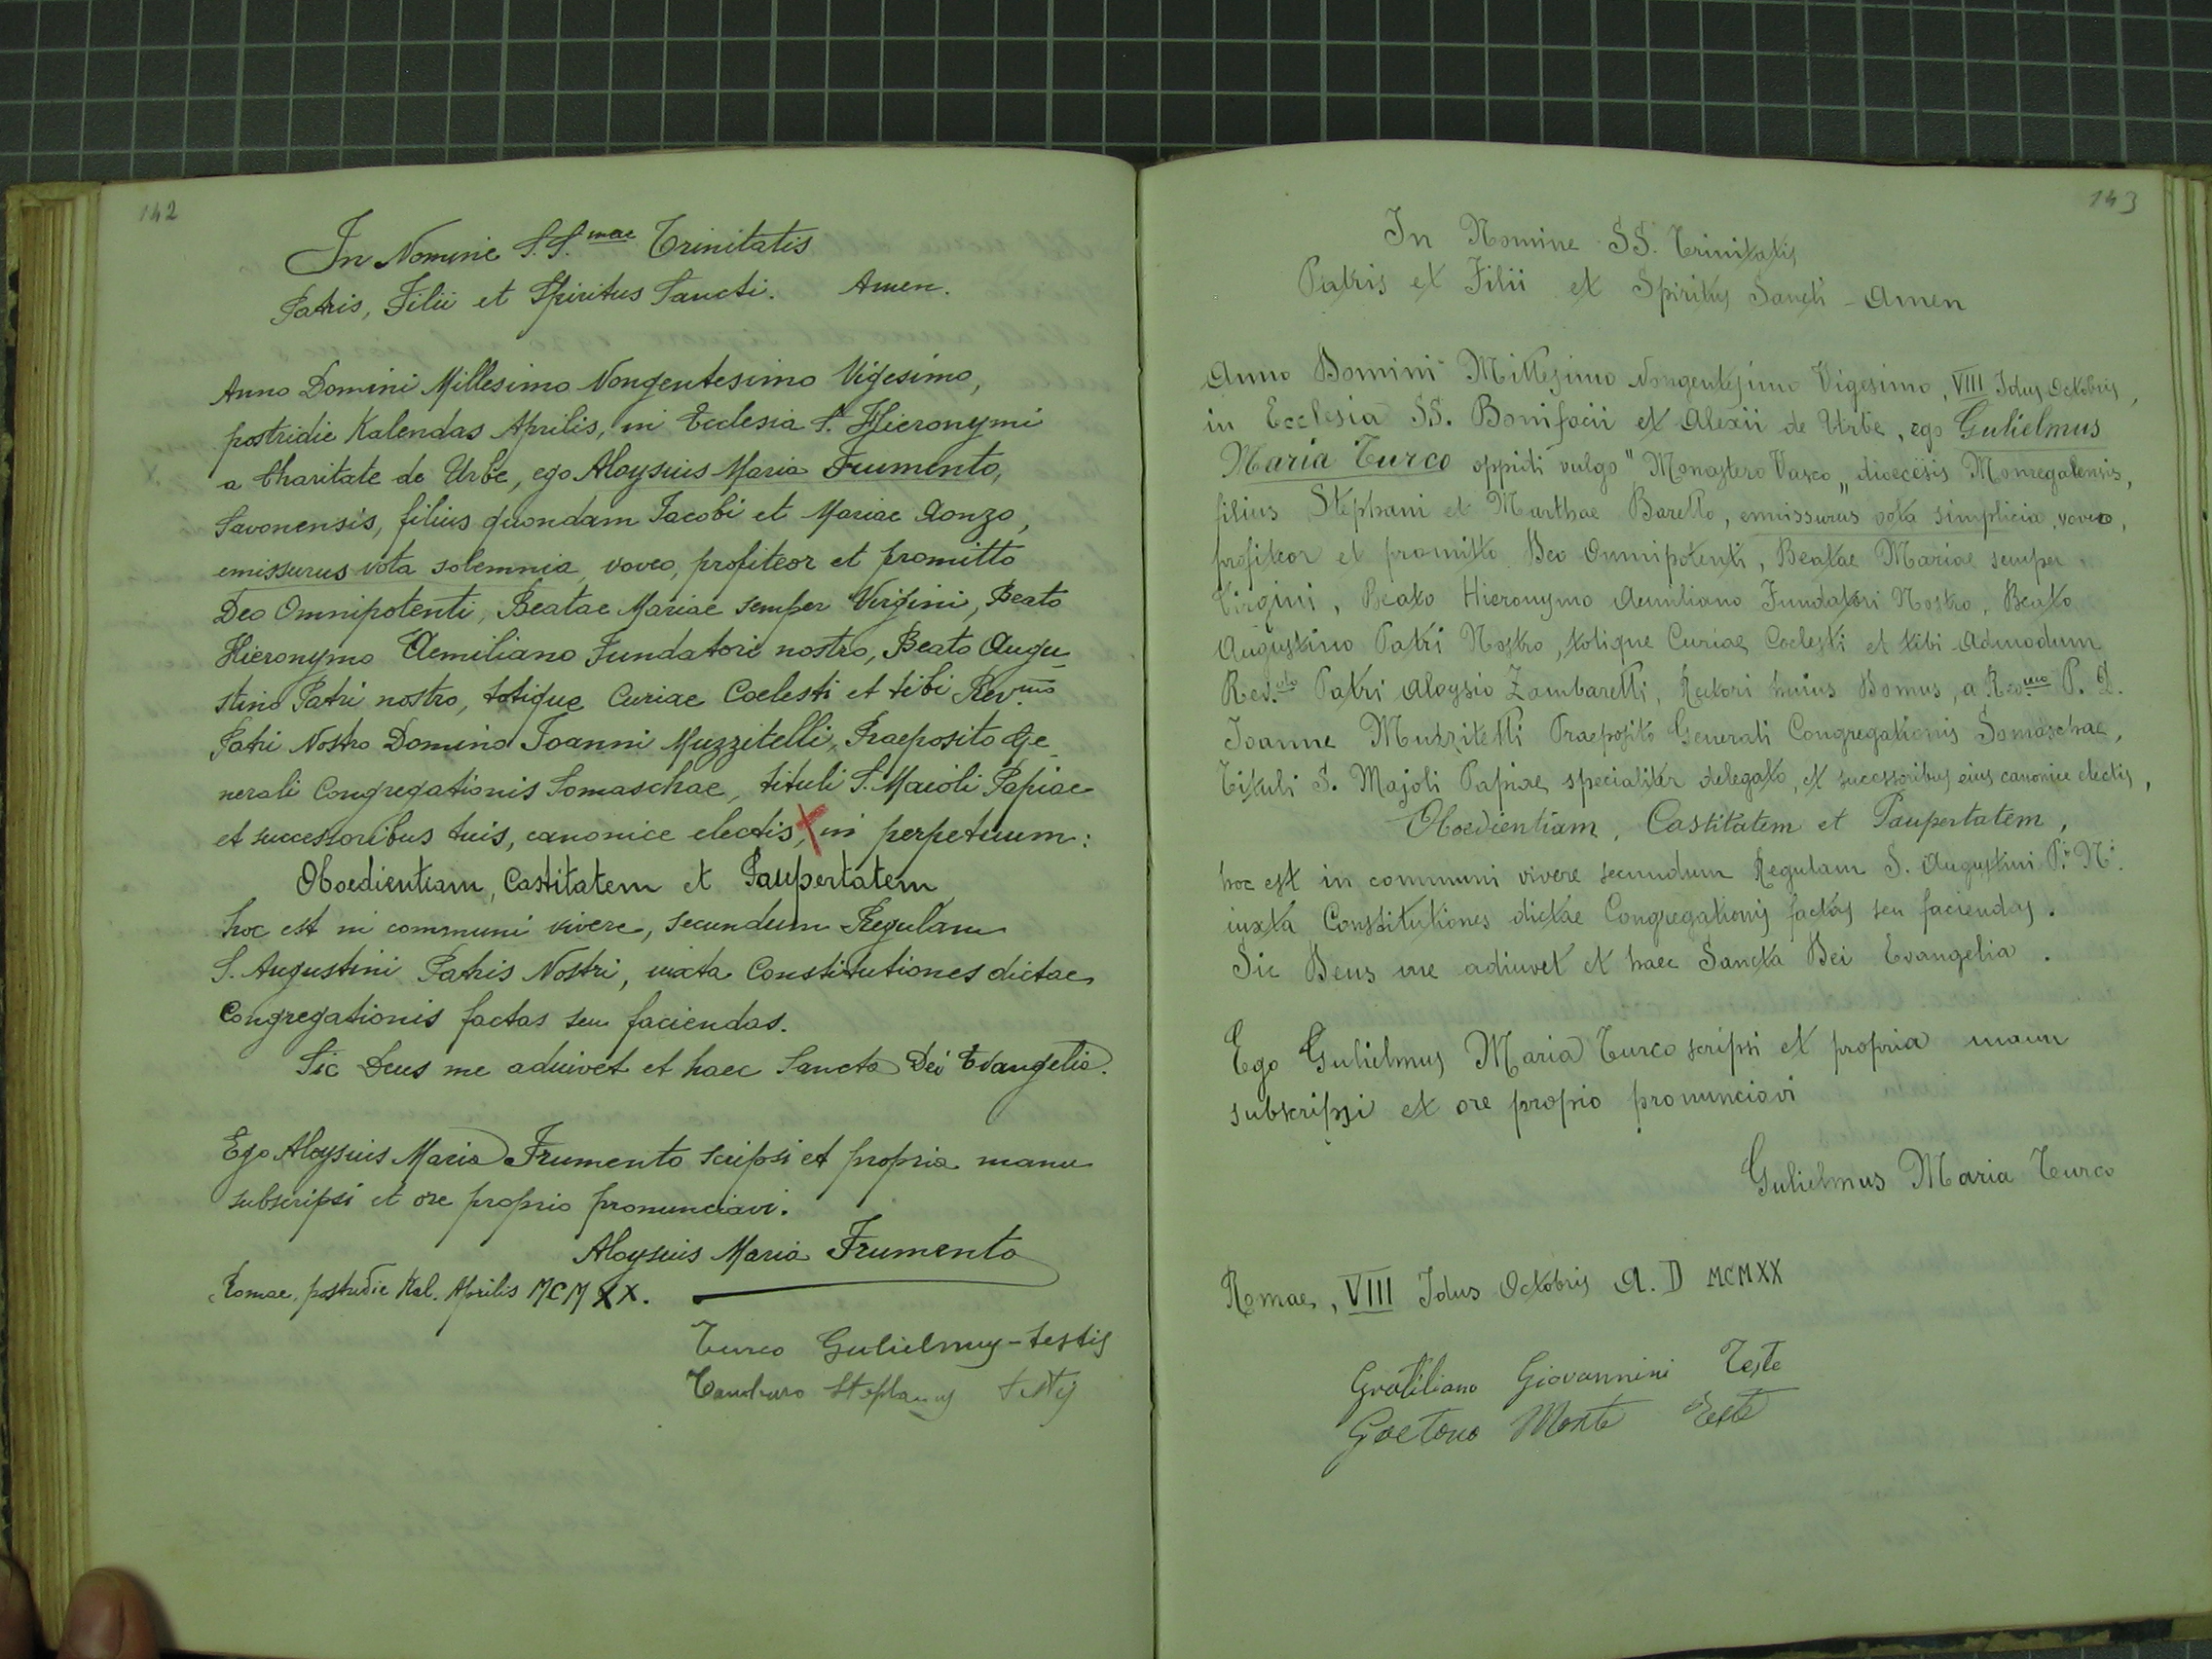 142
In Nomine S.S.mae Trinitatis
Patris, Filii et Spiritus Sancti. Amen.
Anno Domini Millesimo Nongentesimo Vigesimo,
postridie Kalendas Aprilis, in Ecclesia S. Hieronymi
a Charitate de Urbe, ego Aloysius Maria Frumento,
Savonensis, filius quondam Jacobi et Mariae Aonzo,
emissurus vota solemnia, voveo, profiteor et promitto
Deo Omnipotenti, Beatae Mariae semper Virgini, Beato
Hieronymo Aemiliano Fundatori nostro, Beato Augu_
stino Patri nostro, totique Curiae Coelesti et tibi Rev.mo
Patri Nostro Domino Joanni Muzzitelli, Praeposito Ge_
nerali Congregationis Somaschae, tituli S. Maioli Papiae
et successoribus tuis, canonice electis, in perpetuum:
Oboedientiam, Castitatem et Paupertatem
hoc est in communi vivere, secundum Regulam
S. Augustini Patris Nostri, iuxta Constitutiones dictae
Congregationis factas seu faciendas.
Sic Deus me adiuvet et haec Sancta Dei Evangelia.
Ego Aloysius Maria Frumento scripsi et propria manu
subscripsi et ore proprio pronunciavi.
Aloysius Maria Frumento
Romae, postridie Kal. Aprilis MCMXX.
Turco Gulielmus - testis
Tamburo Stephanus testis
143
In Nomine SS. Trinitatis
Patris et Filii et Spiritus Sancti - Amen
Anno Domini Millesimo Nongentesimo Vigesimo, VIII Idus Octobris,
in Ecclesia SS. Bonifacii et Alexii de Urbe, ego Gulielmus
Maria Turco oppiti vulgo "Monastero Vasco„ dioecesis Monregalensis,
filius Stephani et Marthae Baretto, emissurus vota simplicia, voveo,
profiteor et promitto Deo Omnipotenti, Beatae Mariae semper
Virgini, Beato Hieronymo Aemiliano Fundatori Nostro, Beato
Augustino Patri Nostro, totique Curiae Coelesti et tibi Admodum
Rev.do Patri Aloysio Zambarelli, Rectori huius Domus, a Rev.mo P. D.
Joanne Muzzitelli Praeposito Generali Congregationis Somaschae,
Tituli S. Majoli Papiae specialiter delegato, et successoribus eius canonice electis,
Oboedientiam, Castitatem et Paupertatem,
hoc est in communi vivere secundum Regulam S. Augustini P.i N.i
iuxta Constitutiones dictae Congregationis factas seu faciendas.
Sic Deus me adiuvet et haec Sancta Dei Evangelia.
Ego Gulielmus Maria Turco scripsi et propria manu
subscripsi et ore proprio pronunciavi
Gulielmus Maria Turco
Romae, VIII Idus Octobris A. D MCMXX
Gratiliano Giovannini Teste
Gaetano Monte Teste